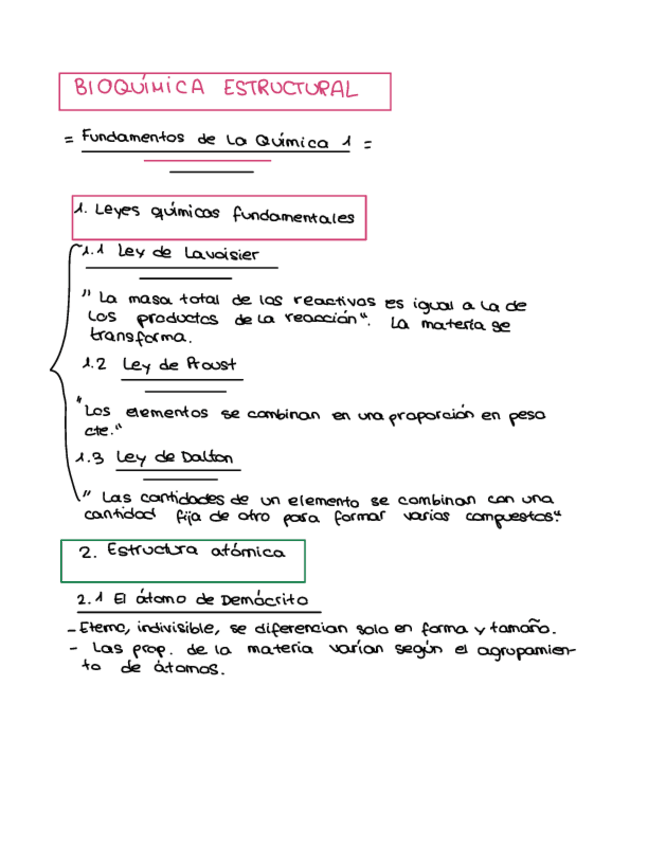 BIOQUÍMICA ESTRUCTURAL
= Fundamentos de la Química 1 =
1. Leyes químicas fundamentales
1.1 Ley de Lavoisier
"La masa total de los reactivos es igual a la de
los productos de la reacción". La materia se
transforma.
1.2 Ley de Proust
"Los elementos se combinan en una proporción en peso
cte."
1.3 Ley de Dalton
"Las cantidades de un elemento se combinan con una
cantidad fija de otro para formar varios compuestos."
2. Estructura atómica
2.1 El átomo de Demócrito
- Eterno, indivisible, se diferencian solo en forma y tamaño.
- Las prop. de la materia varían según el agrupamien-
to de átomos.